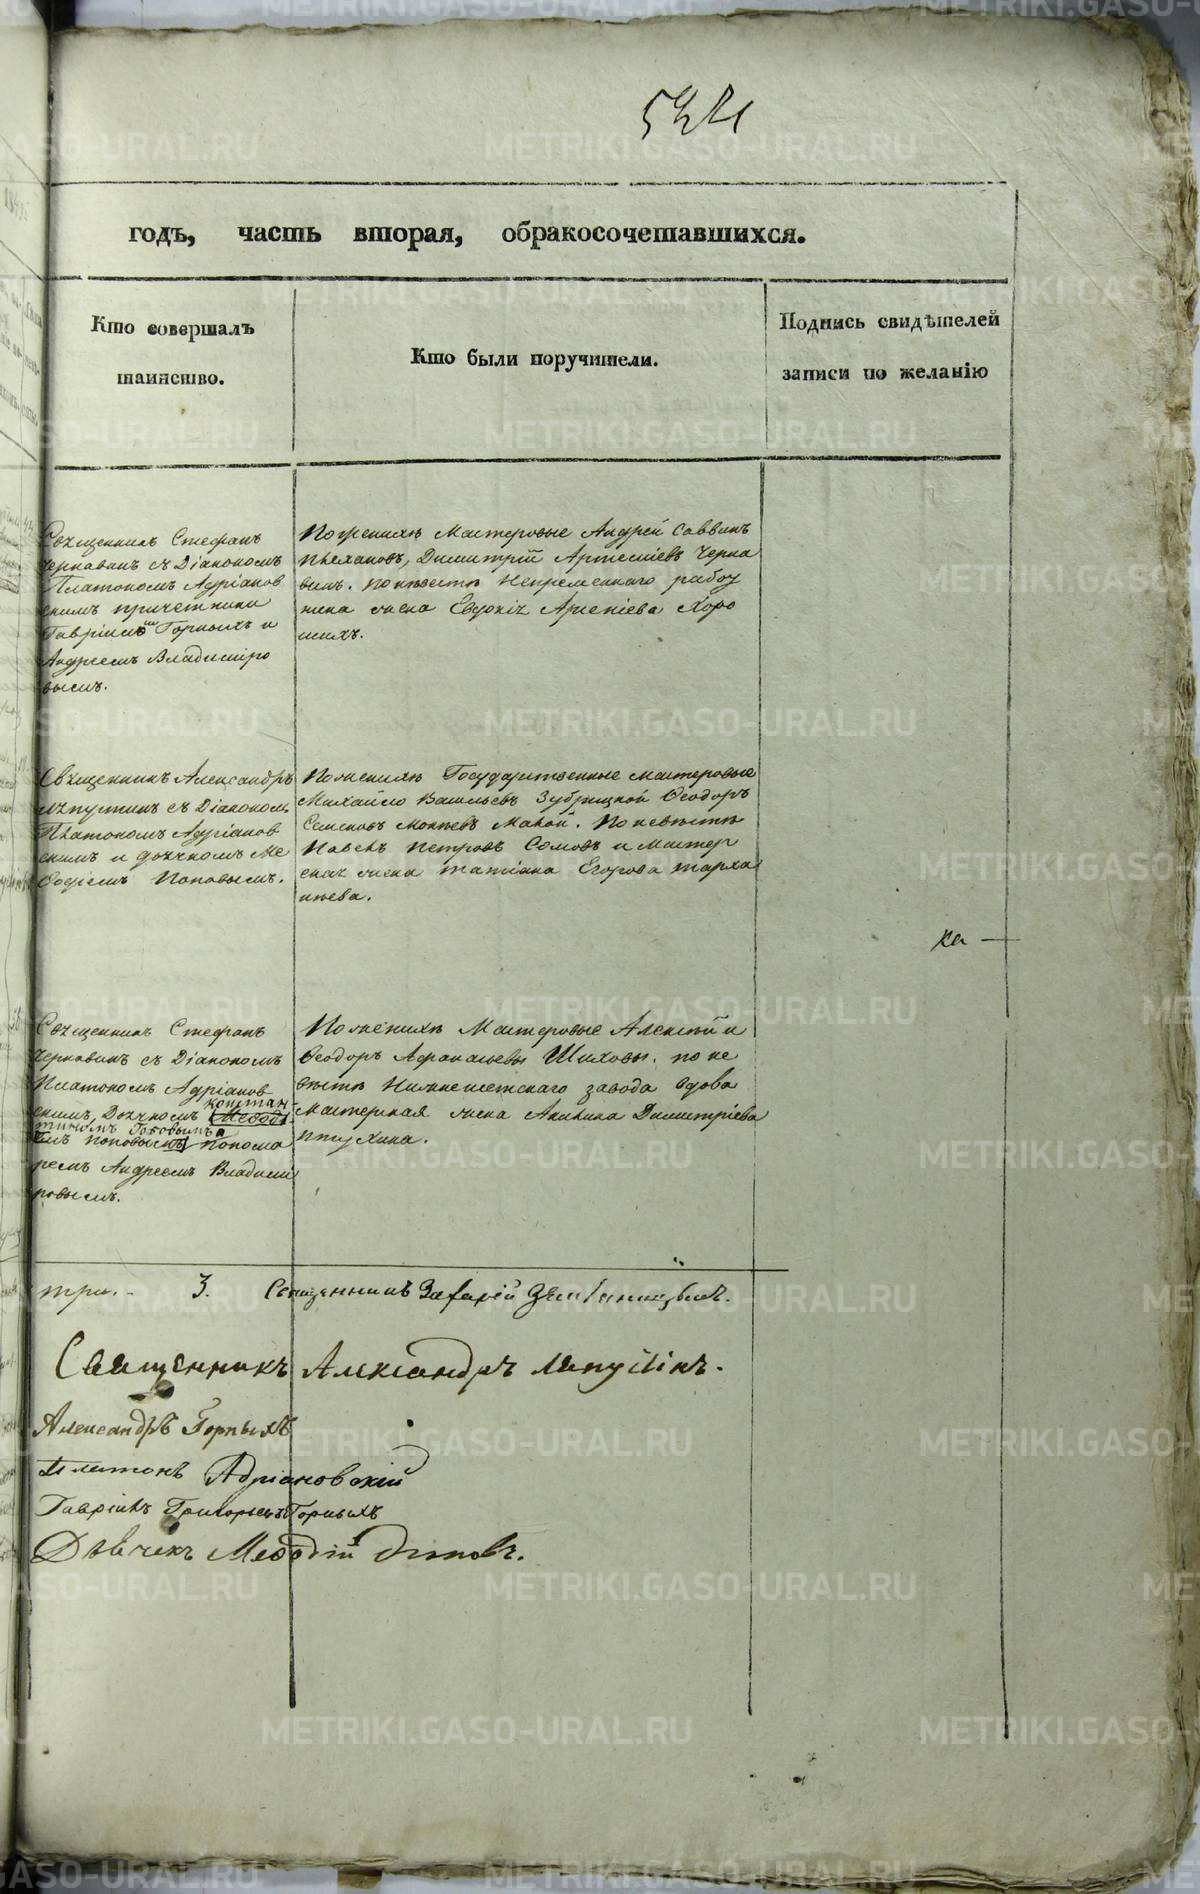 годъ, часть вторая, обракосочетавшихся.
Кто совершалъ
таинство.
Кто были поручители.
Подпись свидѣтелей
записи по желанію
Священникъ Стефанъ
Чернавинъ съ Діакономъ
Платономъ Адріанов
скимъ причетники
Гавріиломъ Горныхъ и
Андреемъ Владиміро
вымъ.
Поженихѣ Мастеровые Андрей Саввинъ
Плехановъ, Димитрій Артеміевъ Черна
винъ. Поневѣстѣ Непременнаго работ
ника жена Евдокія Арсеніева Хоро
шихъ.
Священникъ Александръ
Лапутинъ съ Діаконом
Платономъ Адріанов
скимъ и дьячкомъ Ме
ѳодіемъ Поповымъ.
Поженихѣ Государственные мастеровые
Михайло Васильевъ Зубрицкой Ѳеодоръ
Семеновъ. Поневѣстѣ
Павелъ Петровъ Сомовъ и Мастер
ская жена Татіана Егорова Тарха
нѣева.
ка
Священникъ Стефанъ
Чернавинъ съ Діакономъ
Платономъ Адріанов
скимъ, Дьячкомъ Констан
тиномъ
Понома
ремъ Андреемъ Владими
ровымъ.
Поженихѣ Мастеровые Алексѣй и
Ѳеодоръ Афанасьевы Шиховы. поне
вѣстѣ завода вдова
Мастерская жена Акилина Димитріева
Птухина.
три. 3. Священникъ Захарій
Священникъ Александръ Лапутинъ.
Александръ Горныхъ
Платонъ Адріановскій
Гавріилъ Григорьевъ Горныхъ
Дьячекъ Меѳодій Поповъ.
METRIKI.GASO-URAL.RU